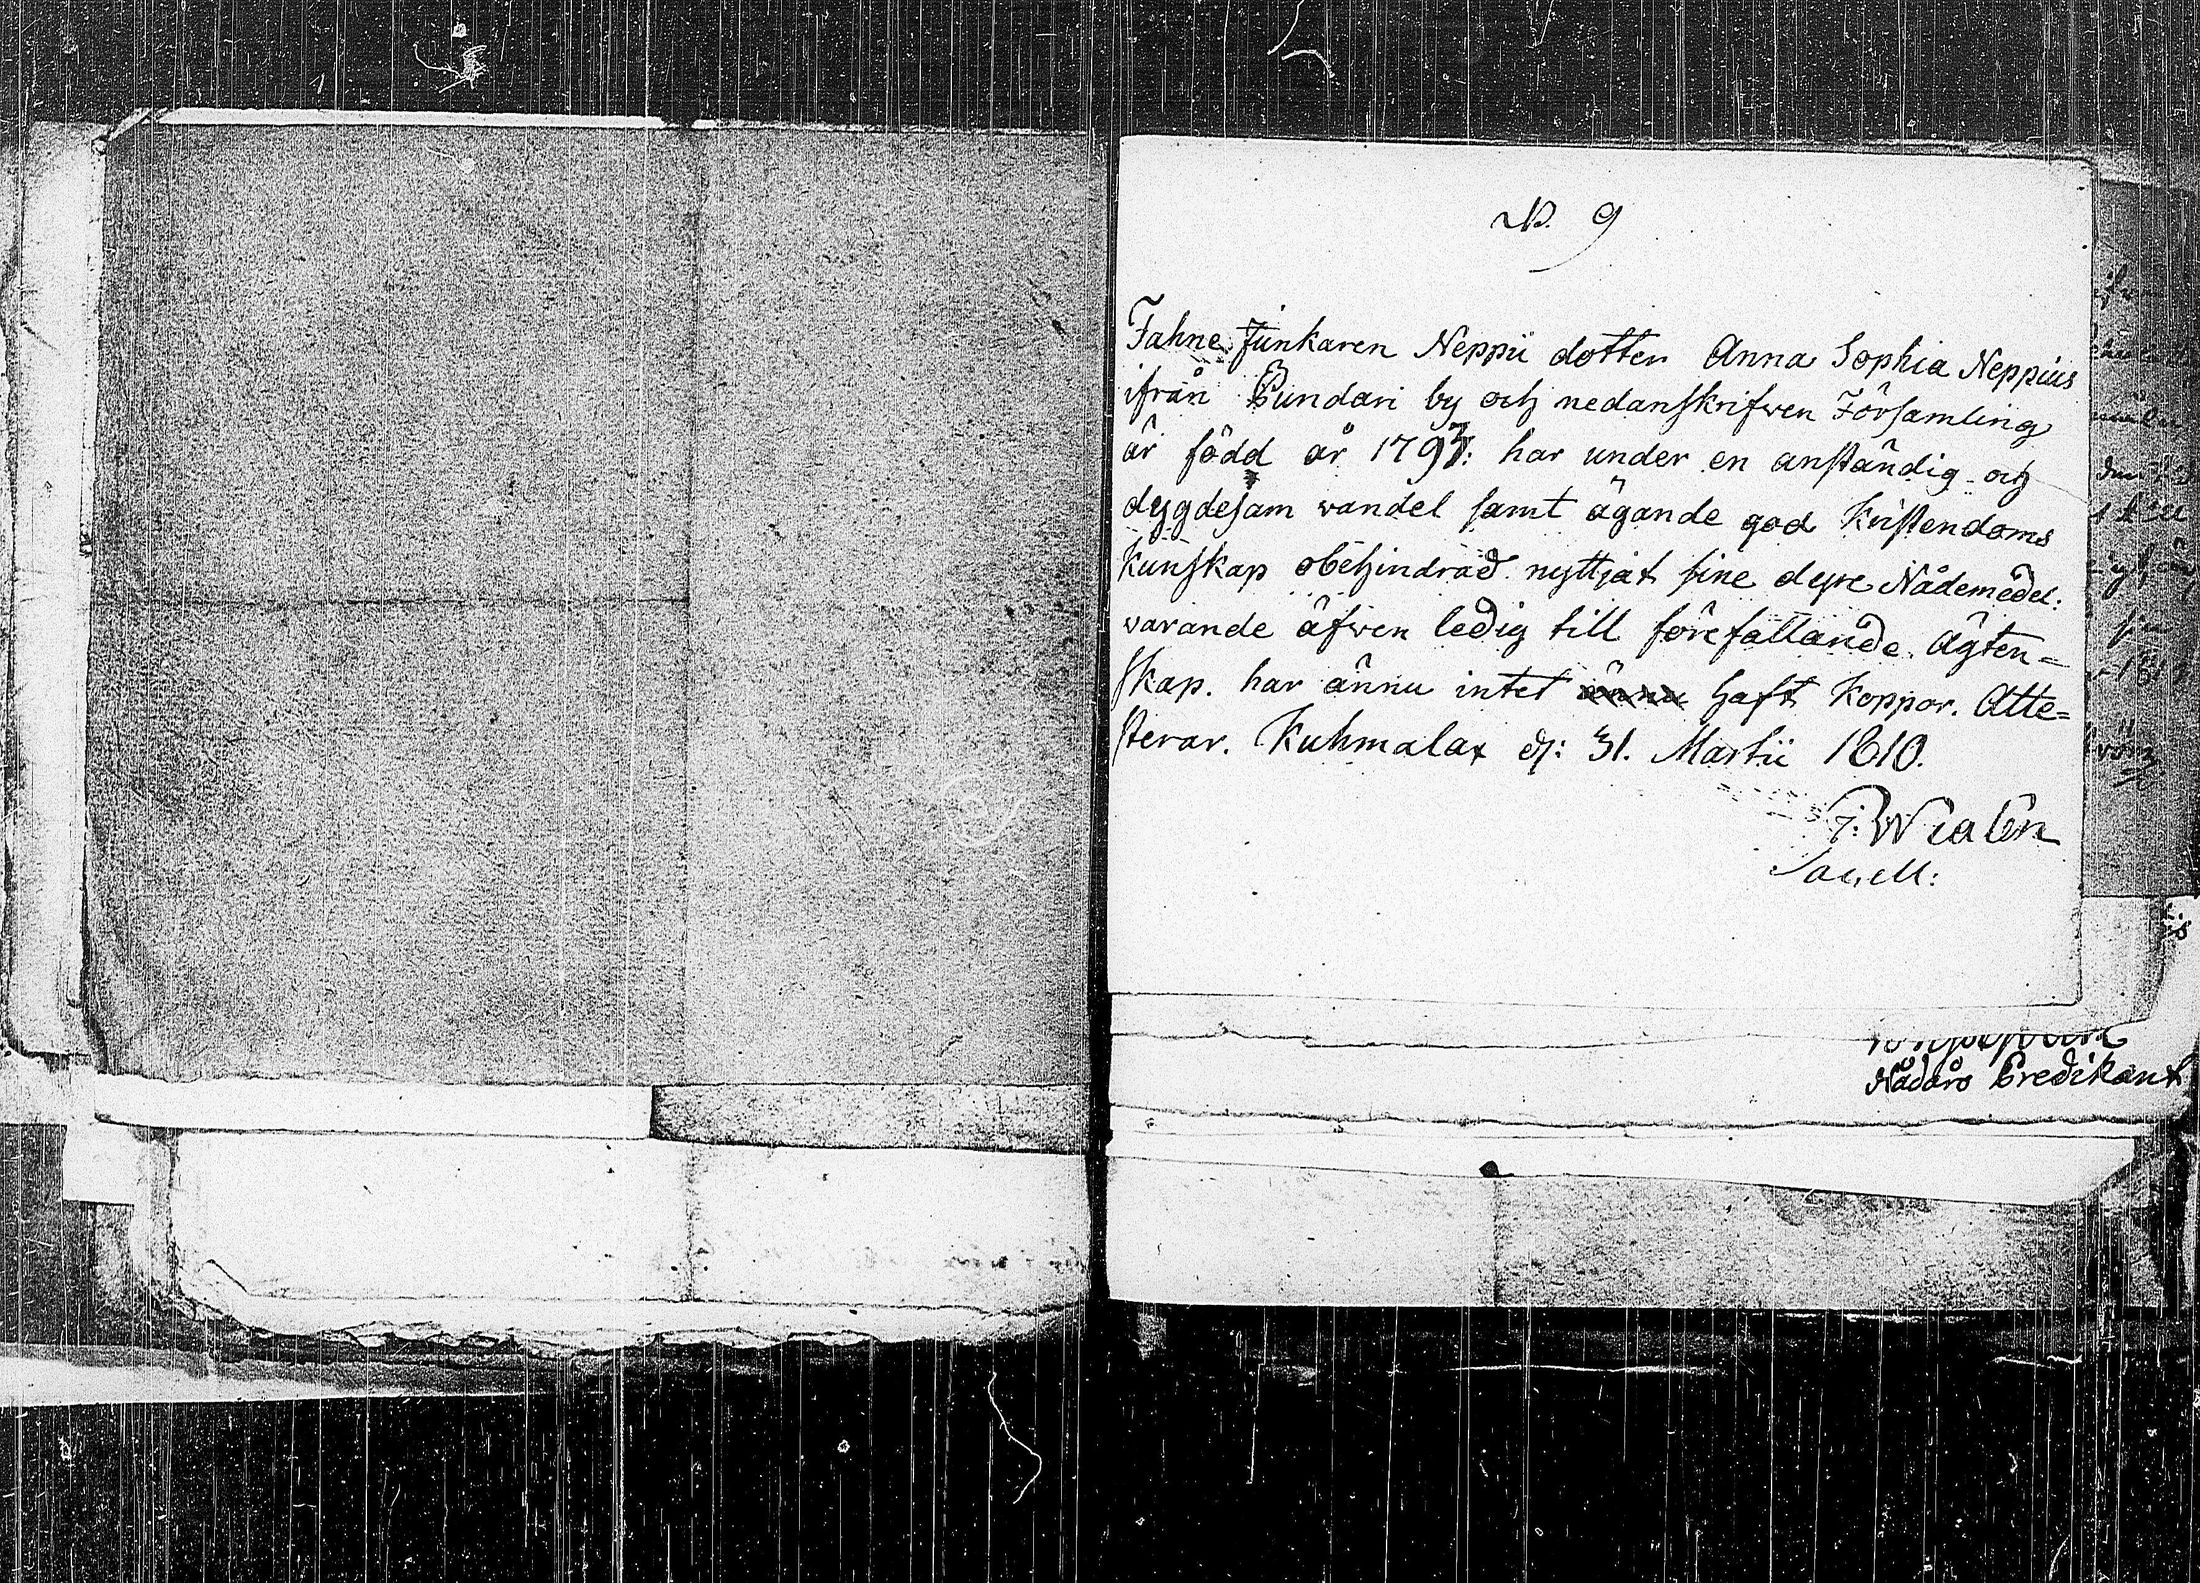 N. 9
Fahne Junkaren Neppii dotter Anna Sophia Neppius
ifrån Pundari by och nedanskrifven Församling
är född år 1793: har under en anständig och
dygdesam vandel samt ägande god Kristendoms
Kunskap obehindrad nyttjat sine dyre Nådemedel:
varande äfven ledig till förefallande Ägten=
skap. har ännu intet ännu haft Koppor. Atte=
sterar. Kuhmalax d: 31. Martii 1810.
J: Wialén
Sacell:
Nådårs Predikant